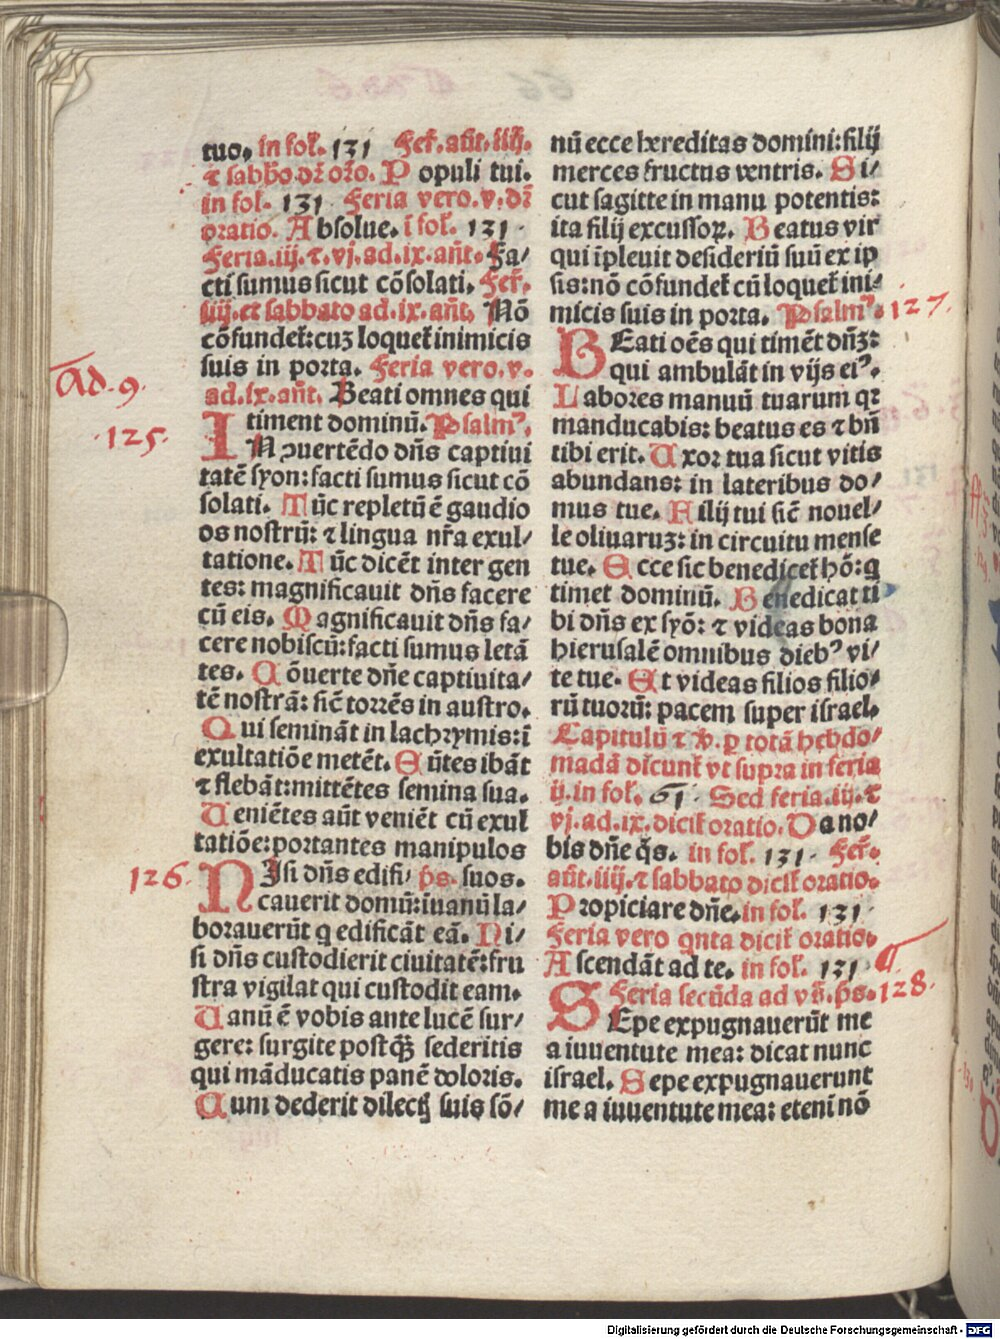 tuo. in fol. 131 Fer̄. añt. iiij.
⁊ sabbo dꝫ oro. Populi tui.
in fol. 131 Feria vero. v. dꝫ
oratio. Absolue. ī fol. 131.
Feria. iij. ⁊. vj. ad. ix. añt. Fa/
cti sumus sicut cōsolati. Fer̄.
iiij. et sabbato ad. ix. añt. Nō
cōfundet̄: cuꝫ loquet̄ inimicis
suis in porta. Feria vero. v.
Ad. 9.
ad. ix. añt. Beati omnes qui
timent dominū. Psalmꝰ.
125.
IN ꝯuertēdo dñs captiui
tatē syon: facti sumus sicut cō
solati. Tūc repletū ē gaudio
os nostrū: ⁊ lingua nr̄a exul/
tatione. Tūc dicēt inter gen
tes: magnificauit dñs facere
cū eis. Magnificauit dñs fa/
cere nobiscū: facti sumus letā
tes. Cōuerte dñe captiuita/
tē nostrā: sic̄ torrēs in austro.
Qui semināt in lachrymis: ī
exultatiōe metēt. Eūtes ibāt
⁊ flebāt: mittētes semina sua.
Ueniētes aūt veniēt cū exul
tatiōe: portantes manipulos
126. NIsi dñs edifi/ p̄s. suos.
cauerit domū: ī vanū la/
borauerūt q edificāt eā. Ni/
si dñs custodierit ciuitatē: fru
stra vigilat qui custodit eam.
Uanū ē vobis ante lucē sur/
gere: surgite postꝙ̄ sederitis
qui māducatis panē doloris.
Cum dederit dilectꝭ suis sō/
nū ecce hereditas domini: filij
merces fructus ventris. Si/
cut sagitte in manu potentis:
ita filij excussoꝝ. Beatus vir
qui īpleuit desideriū suū ex ip
sis: nō cōfundet̄ cū loquet̄ ini/
micis suis in porta. Psalmꝰ. 127.
BEati oēs qui timēt dñꝫ:
qui ambulāt in vijs eiꝰ.
Labores manuū tuarum qꝛ
manducabis: beatus es ⁊ bn̄
tibi erit. Uxor tua sicut vitis
abundans: in lateribus do/
mus tue. Filij tui sic̄ nouel/
le oliuaruꝫ: in circuitu mense
tue. Ecce sic benedicet̄ hō: q
timet dominū. Benedicat ti
bi dñs ex syō: ⁊ videas bona
hierusalē omnibus diebꝰ vi/
te tue. Et videas filios filio/
rū tuorū: pacem super israel.
Capitulū ⁊ ℣. p totā hebdo/
madā dicunt̄ vt supra in feria
ij. in fol. 61. Sed feria. iij. ⁊
vj. ad. ix. dicit̄ oratio. Da no/
bis dñe q̄s. in fol. 131. Fer̄.
añt. iiij. ⁊ sabbato dicit̄ oratio.
Propiciare dñe. in fol. 131.
Feria vero qnta dicit̄ oratio.
Ascendāt ad te. in fol. 131.
Feria secūda ad vs̄. p̄s. 128.
SEpe expugnauerūt me
a iuuentute mea: dicat nunc
israel. Sepe expugnauerunt
me a iuuentute mea: etenī nō
Digitalisierung gefördert durch die Deutsche Forschungsgemeinschaft - DFG